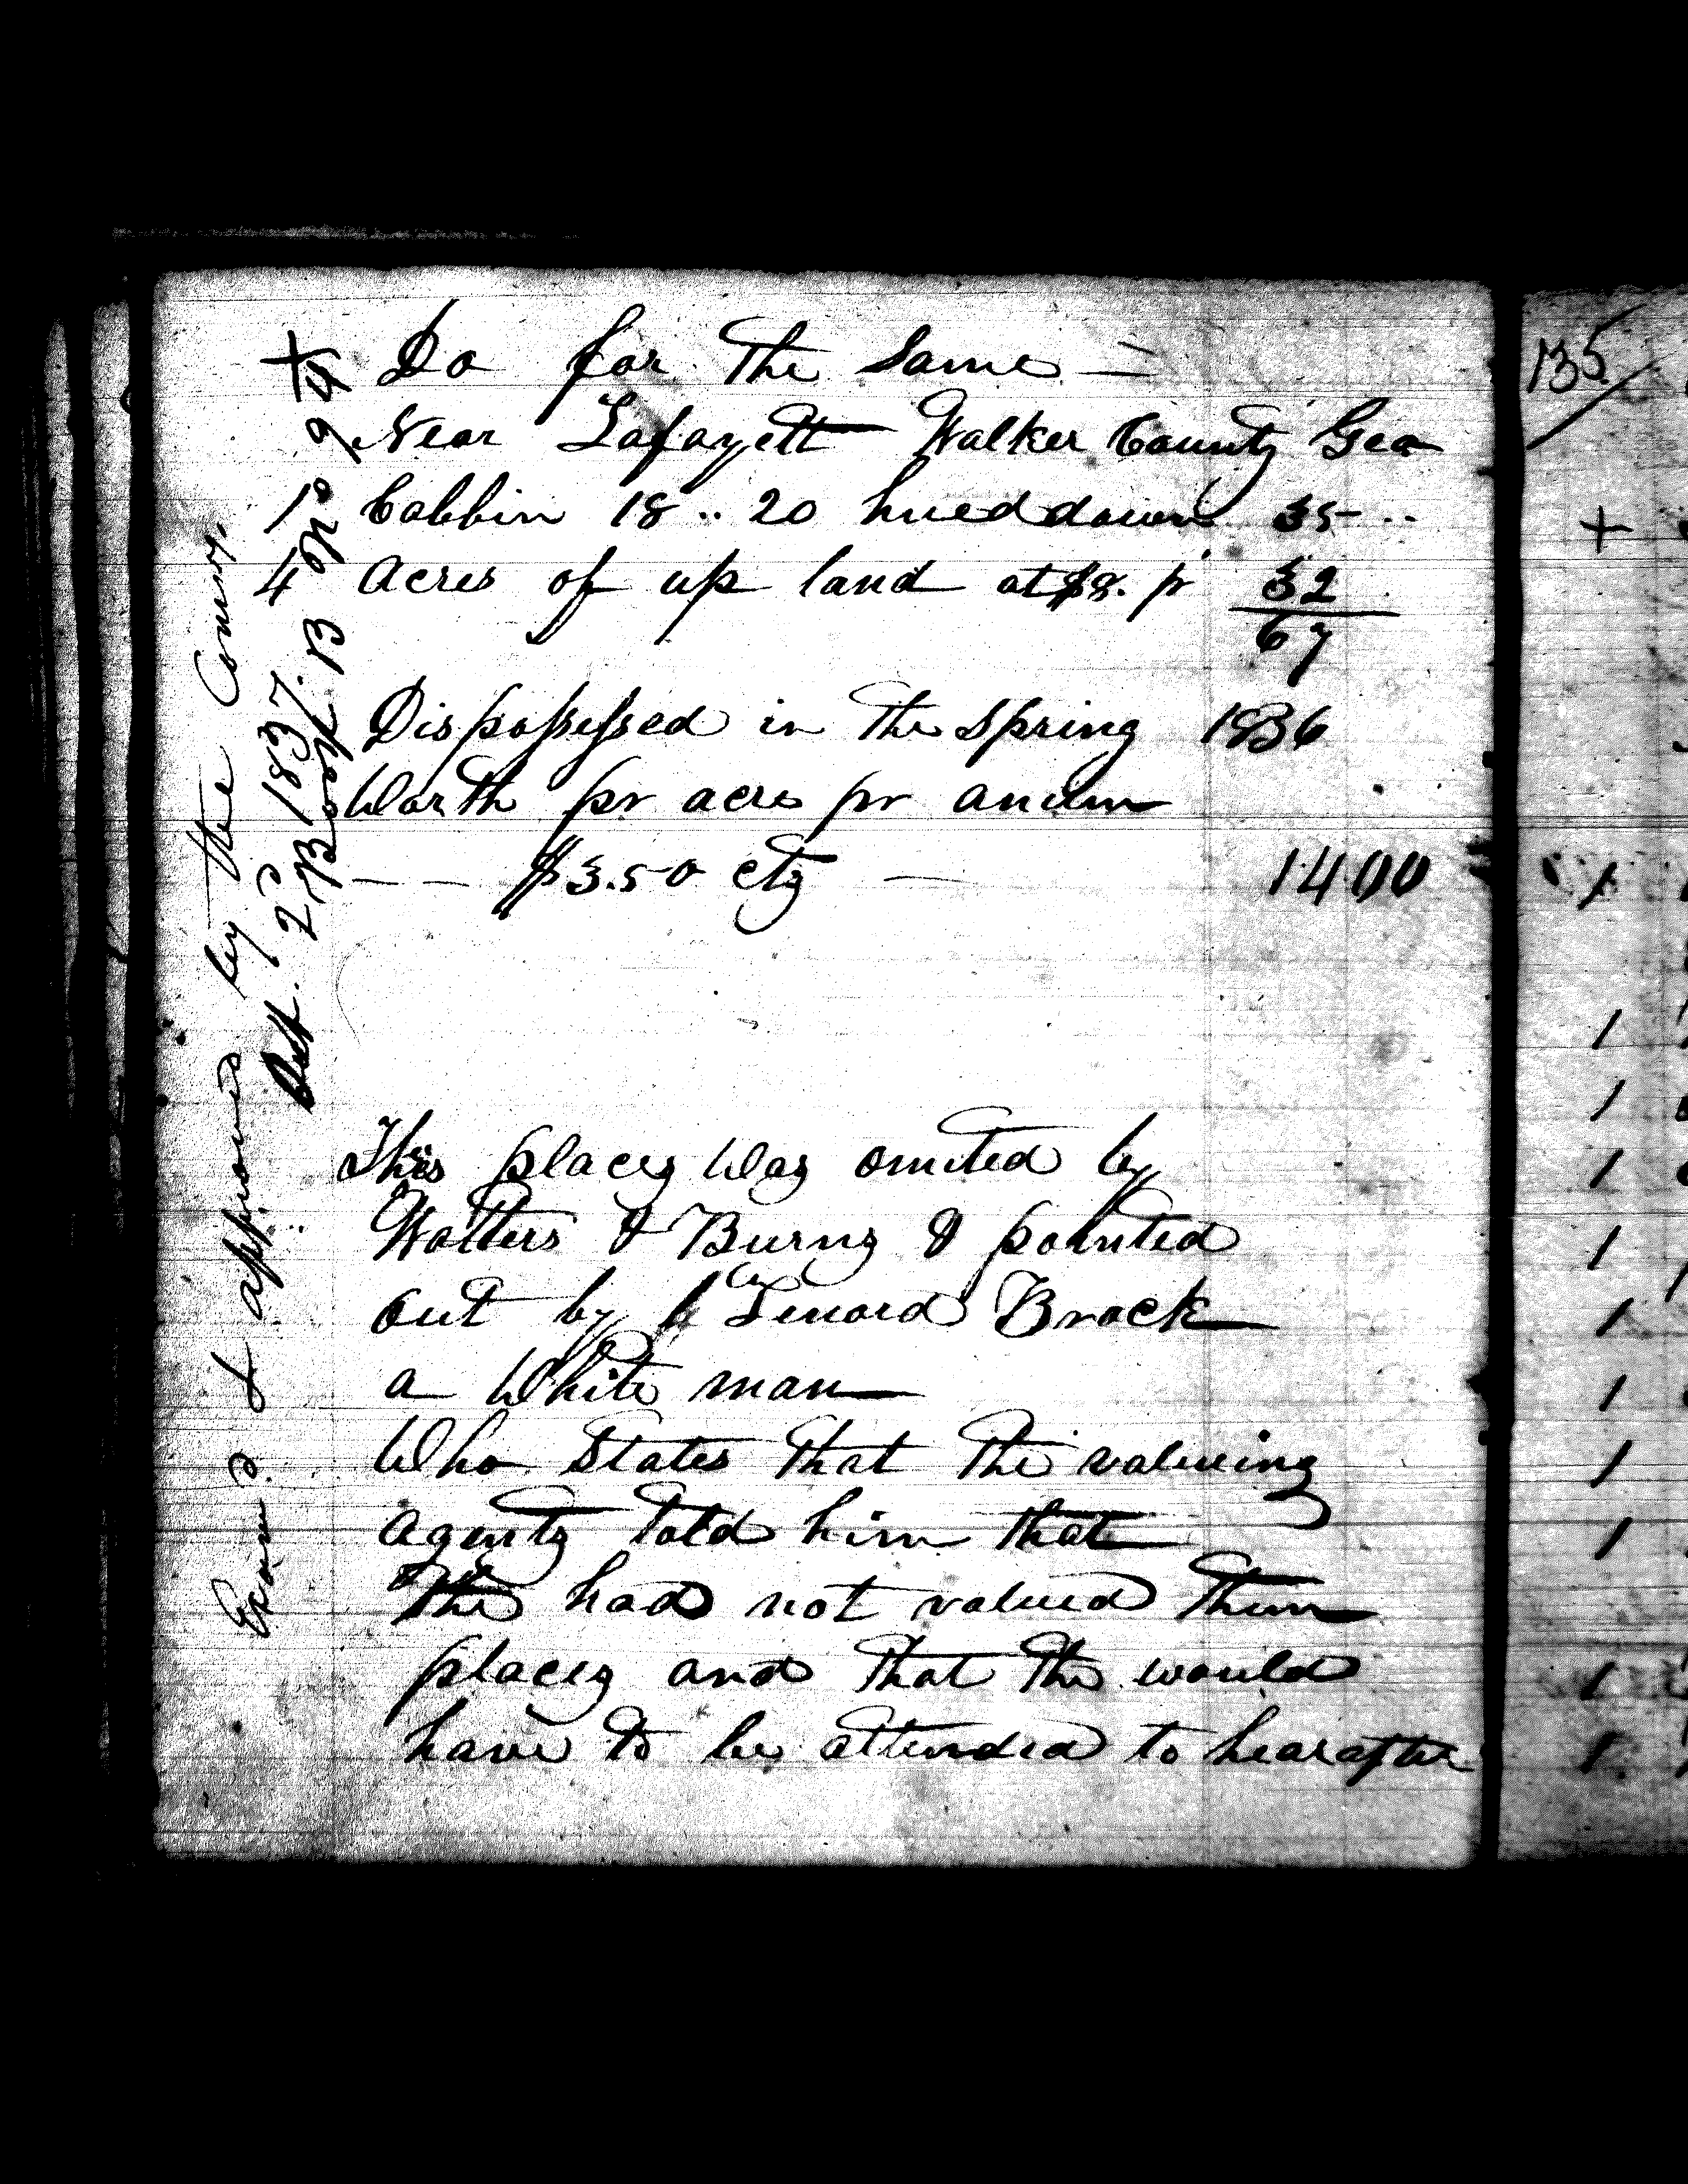 Do for the Same —
Near Lafayett Walker County Geo
1 Cabbin 18 .. 20 hued down 35 ..
4 Acres of up land at $8. pr 32
67
Dispossessed in the Spring 1836
Worth pr acre pr anum
— — $3.50 cts — 14 00
This places was omited by
Walters & Burns & pointed
out by Lenord Brock
a White man
Who States that the valuing
Agents told him that
the had not valued them
places and that the would
have to be attended to hearafter
Exam d. & approved by the Comrs.
Octr. 2d 1837.
Book B No 94
135